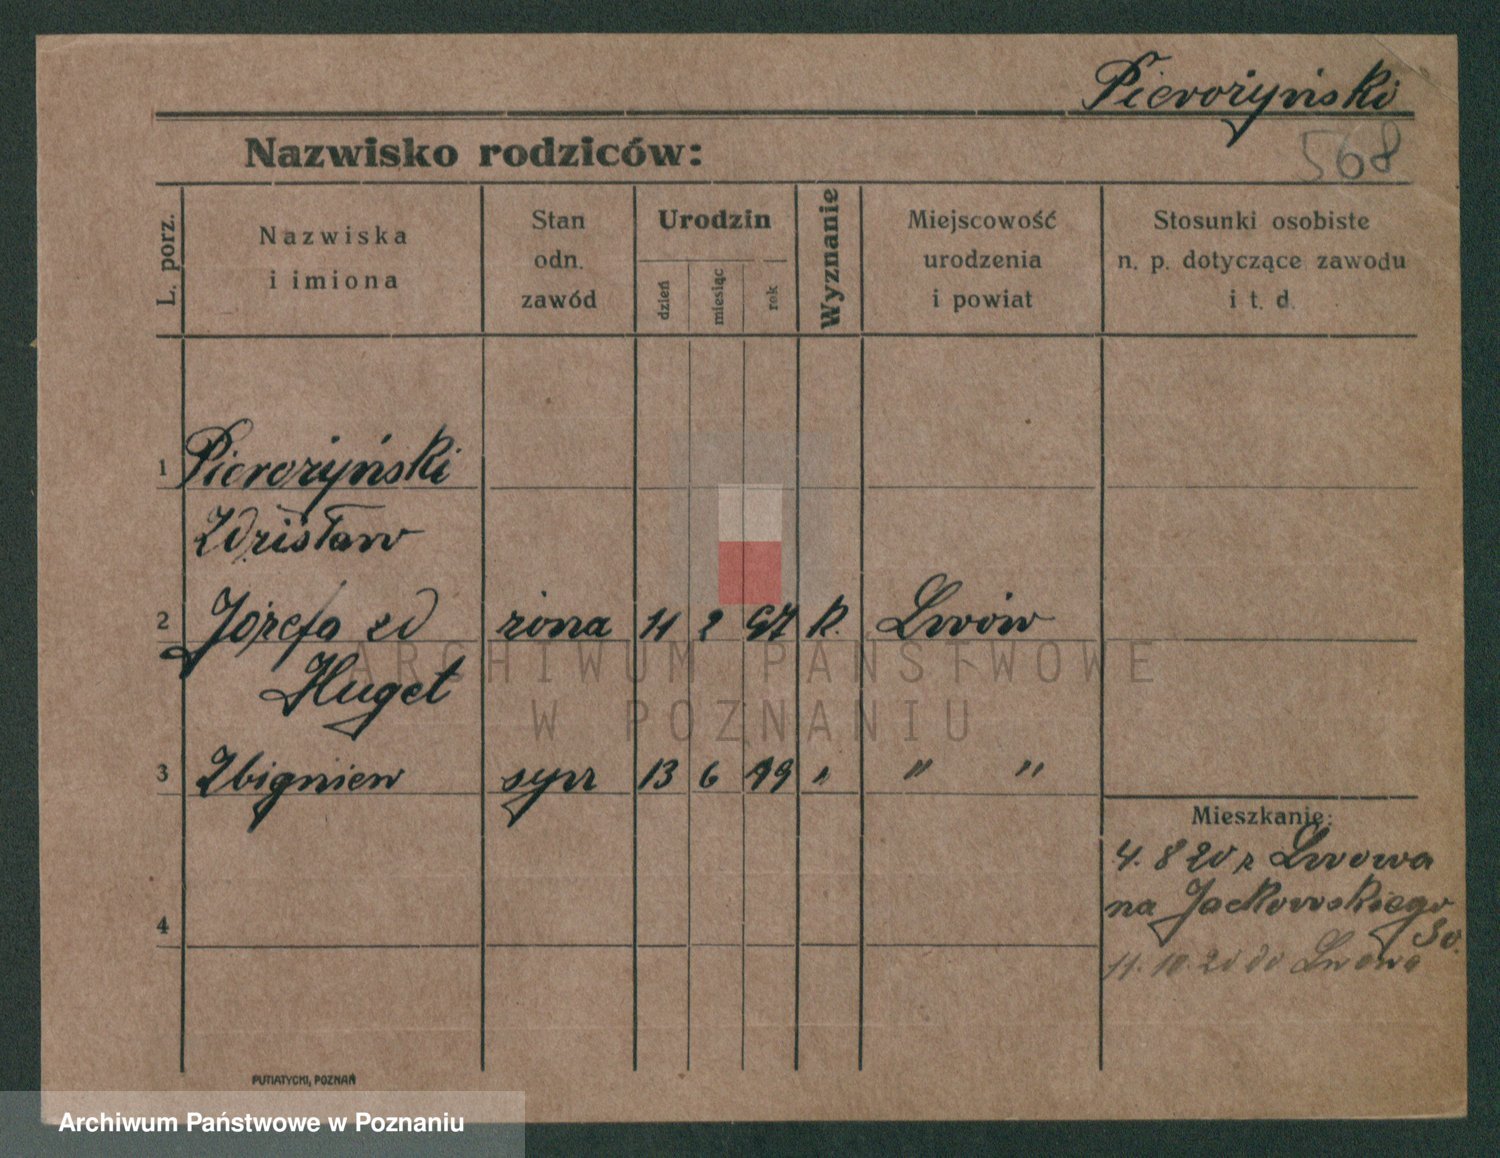 Pierożyński
568
Nazwisko rodziców:
L. porz.
Nazwiska
i imiona
Stan
odn.
zawód
Urodzin
dzień
miesiąc
rok
Wyznanie
Miejscowość
urodzenia
i powiat
Stosunki osobiste
n. p. dotyczące zawodu
i t. d.
1 Pierożyński
Zdzisław
2 Józefa zd żona 11 2 97 R. Lwów
Huget
ARCHIWUM PAŃSTWOWE
W POZNANIU
3 Zbigniew syn 13 6 19 " " "
Mieszkanie:
4. 8 20 z Lwowa
na Jackowskiego
30.
4
11. 10. 20 do Lwowa
PUTIATYCKI, POZNAŃ
Archiwum Państwowe w Poznaniu